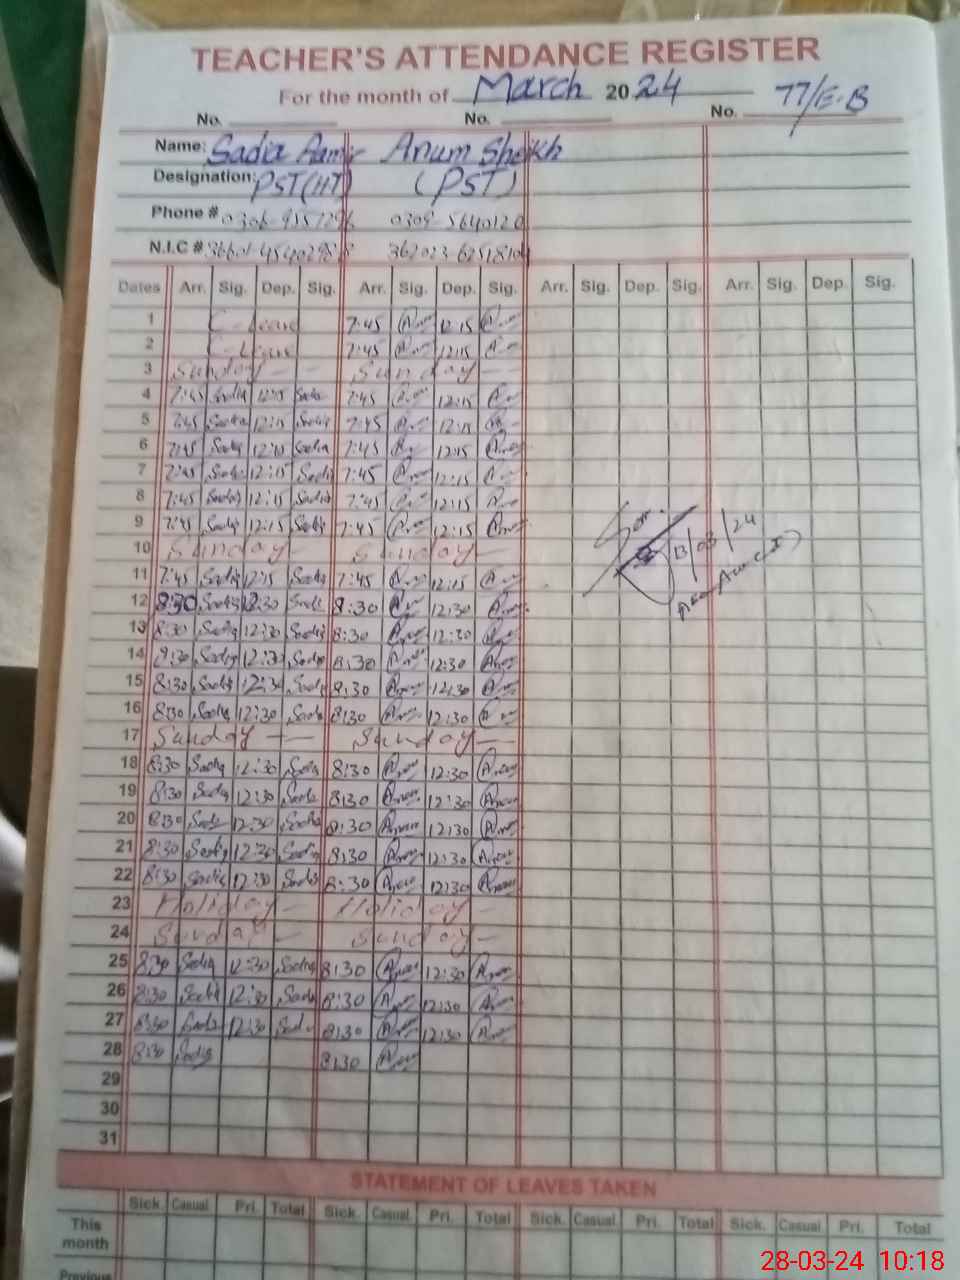 TEACHER'S ATTENDANCE REGISTER
For the month of March 2024 77/E.B
No. No. No.
Name: Sadia Aamir Anum Sheikh
Designation: PST(HT) (PST)
Phone #
N.I.C #
Dates Arr. Sig. Dep. Sig. Arr. Sig. Dep. Sig. Arr. Sig. Dep. Sig. Arr. Sig. Dep. Sig.
1 C-Leave 7:45 Anum 12:15 Anum
2 C-Leave 7:45 Anum 12:15 Anum
3 Sunday — — Sunday — —
4 7:45 Sadia 12:15 Sadia 7:45 Anum 12:15 Anum
5 7:45 Sadia 12:15 Sadia 7:45 Anum 12:15 Anum
6 7:45 Sadia 12:15 Sadia 7:45 Anum 12:15 Anum
7 7:45 Sadia 12:15 Sadia 7:45 Anum 12:15 Anum
8 7:45 Sadia 12:15 Sadia 7:45 Anum 12:15 Anum
9 7:45 Sadia 12:15 Sadia 7:45 Anum 12:15 Anum
10 Sunday — Sunday —
11 7:45 Sadia 12:15 Sadia 7:45 Anum 12:15 Anum
12 8:30 Sadia 12:30 Sadia 8:30 Anum 12:30 Anum
13 8:30 Sadia 12:30 Sadia 8:30 Anum 12:30 Anum
14 8:30 Sadia 12:30 Sadia 8:30 Anum 12:30 Anum
15 8:30 Sadia 12:30 Sadia 8:30 Anum 12:30 Anum
16 8:30 Sadia 12:30 Sadia 8:30 Anum 12:30 Anum
17 Sunday — — Sunday —
18 8:30 Sadia 12:30 Sadia 8:30 Anum 12:30 Anum
19 8:30 Sadia 12:30 Sadia 8:30 Anum 12:30 Anum
20 8:30 Sadia 12:30 Sadia 8:30 Anum 12:30 Anum
21 8:30 Sadia 12:30 Sadia 8:30 Anum 12:30 Anum
22 8:30 Sadia 12:30 Sadia 8:30 Anum 12:30 Anum
23 Holiday — Holiday —
24 Sunday — Sunday —
25 8:30 Sadia 12:30 Sadia 8:30 Anum 12:30 Anum
26 8:30 Sadia 12:30 Sadia 8:30 Anum 12:30 Anum
27 8:30 Sadia 12:30 Sadia 8:30 Anum 12:30 Anum
28 8:30 Sadia 8:30 Anum
29
30
31
13/03/24
STATEMENT OF LEAVES TAKEN
Sick. Casual Pri. Total Sick. Casual Pri. Total Sick. Casual Pri. Total Sick. Casual Pri. Total
This month
Previous
28-03-24 10:18